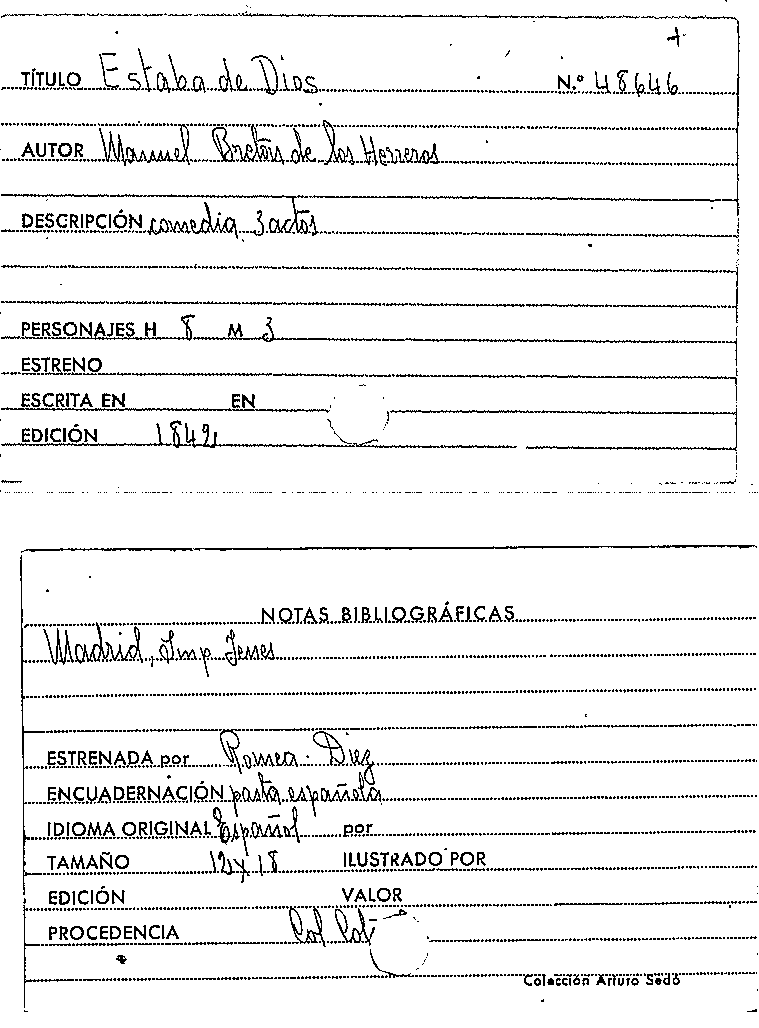 +
TÍTULO Estaba de Dios N.º 48646
AUTOR Manuel Bretón de los Herreros
DESCRIPCIÓN comedia 3 actos
PERSONAJES H 8 M 3
ESTRENO
ESCRITA EN EN
EDICIÓN 1842
NOTAS BIBLIOGRÁFICAS
Madrid, Imp Yenes
ESTRENADA por Romea - Diez
ENCUADERNACIÓN pasta española
IDIOMA ORIGINAL Español por
TAMAÑO 12 x 18 ILUSTRADO POR
EDICIÓN VALOR
PROCEDENCIA Col Cot
Colección Arturo Sedó